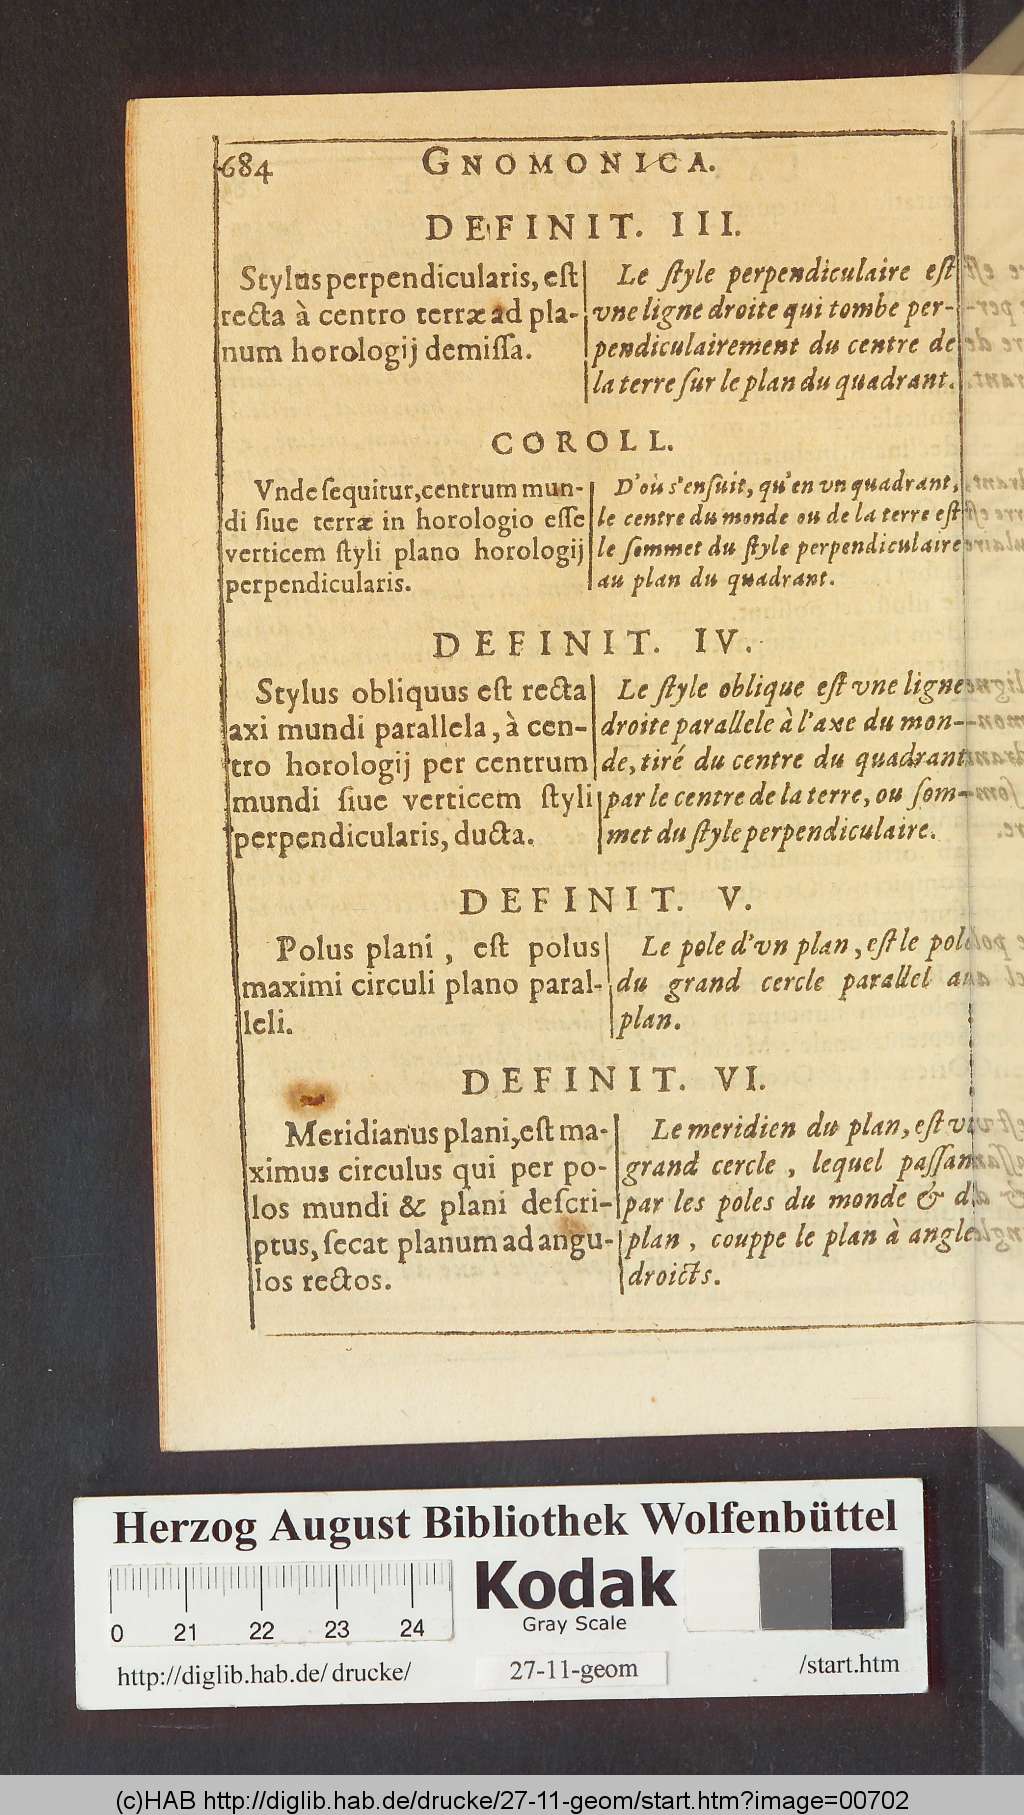 684 GNOMONICA.
DEFINIT. III.
Stylus perpendicularis, est
recta à centro terræ ad pla-
num horologij demissa.
Le style perpendiculaire est
vne ligne droite qui tombe per-
pendiculairement du centre de
la terre sur le plan du quadrant.
COROLL.
Vnde sequitur, centrum mun-
di siue terræ in horologio esse
verticem styli plano horologij
perpendicularis.
D'où s'ensuit, qu'en vn quadrant,
le centre du monde ou de la terre est
le sommet du style perpendiculaire
au plan du quadrant.
DEFINIT. IV.
Stylus obliquus est recta
axi mundi parallela, à cen-
tro horologij per centrum
mundi siue verticem styli
perpendicularis, ducta.
Le style oblique est vne ligne
droite parallele à l'axe du mon-
de, tiré du centre du quadrant
par le centre de la terre, ou som-
met du style perpendiculaire.
DEFINIT. V.
Polus plani, est polus
maximi circuli plano paral-
leli.
Le pole d'vn plan, est le pole
du grand cercle parallel au
plan.
DEFINIT. VI.
Meridianus plani, est ma-
ximus circulus qui per po-
los mundi & plani descri-
ptus, secat planum ad angu-
los rectos.
Le meridien du plan, est vn
grand cercle, lequel passant
par les poles du monde & du
plan, couppe le plan à angles
droicts.
Herzog August Bibliothek Wolfenbüttel
0 21 22 23 24
Kodak
Gray Scale
http://diglib.hab.de/ drucke/ 27-11-geom /start.htm
(c)HAB http://diglib.hab.de/drucke/27-11-geom/start.htm?image=00702